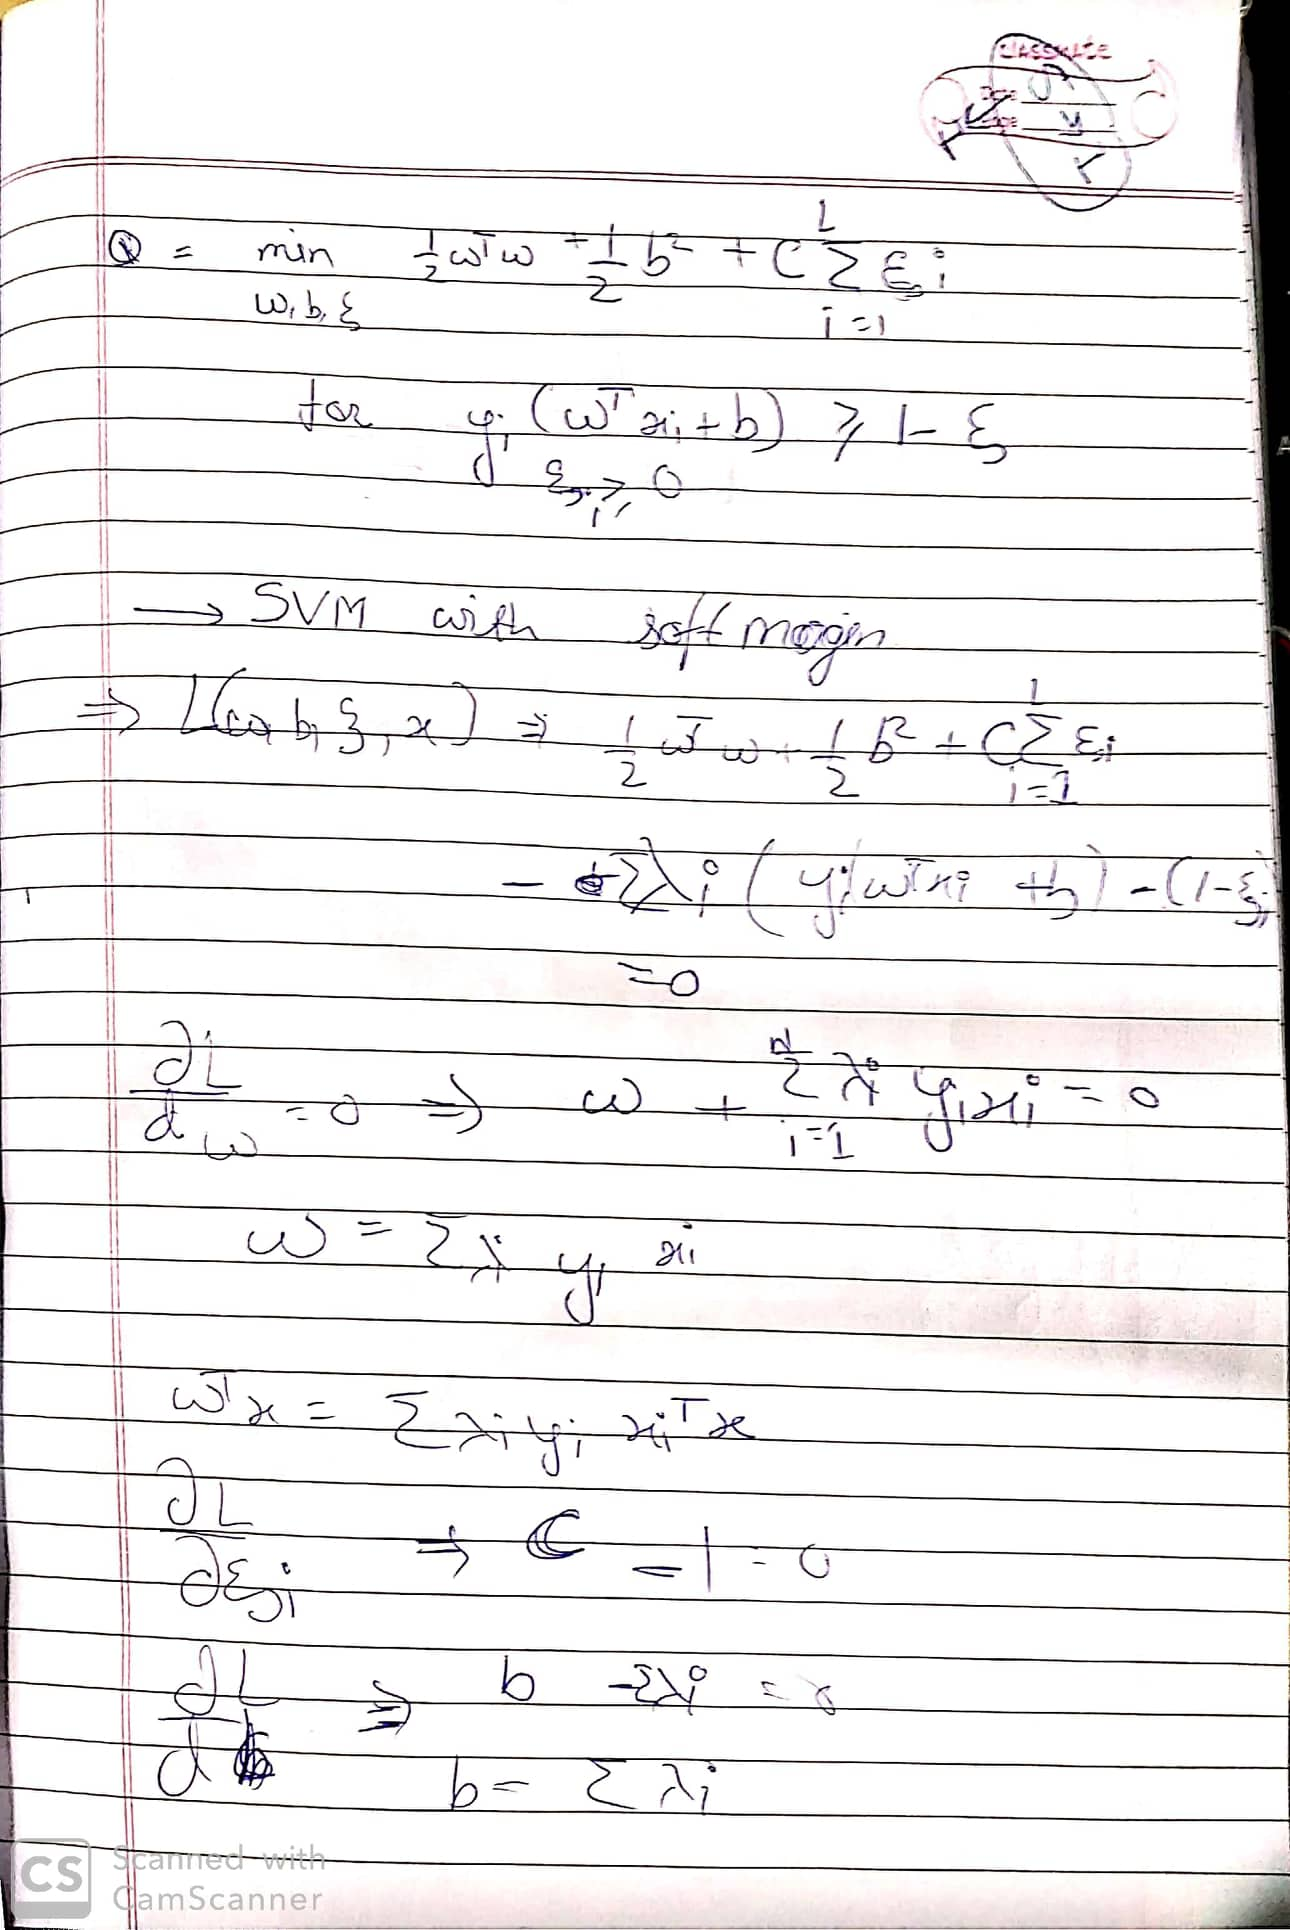 classmate
Date
Page
Q = min 1/2 wᵀw + 1/2 b² + C Σ ξi
w, b, ξ i=1
for yi (wᵀxi + b) ≥ 1 - ξ
ξi ≥ 0
→ SVM with soft margin
⇒ L(w, b, ξ, x) ⇒ 1/2 wᵀw + 1/2 b² + C Σ ξi
i=1
- Σλi ( yi(wᵀxi + b) - (1-ξi
=0
∂L/∂w = 0 ⇒ w + Σ λi yi xi = 0
i=1
w = Σλi yi xi
wᵀx = Σ λi yi xiᵀ x
∂L/∂ξi ⇒ C - 1 = 0
∂L/∂b ⇒ b - Σλi = 0
b = Σ λi
CS Scanned with
CamScanner